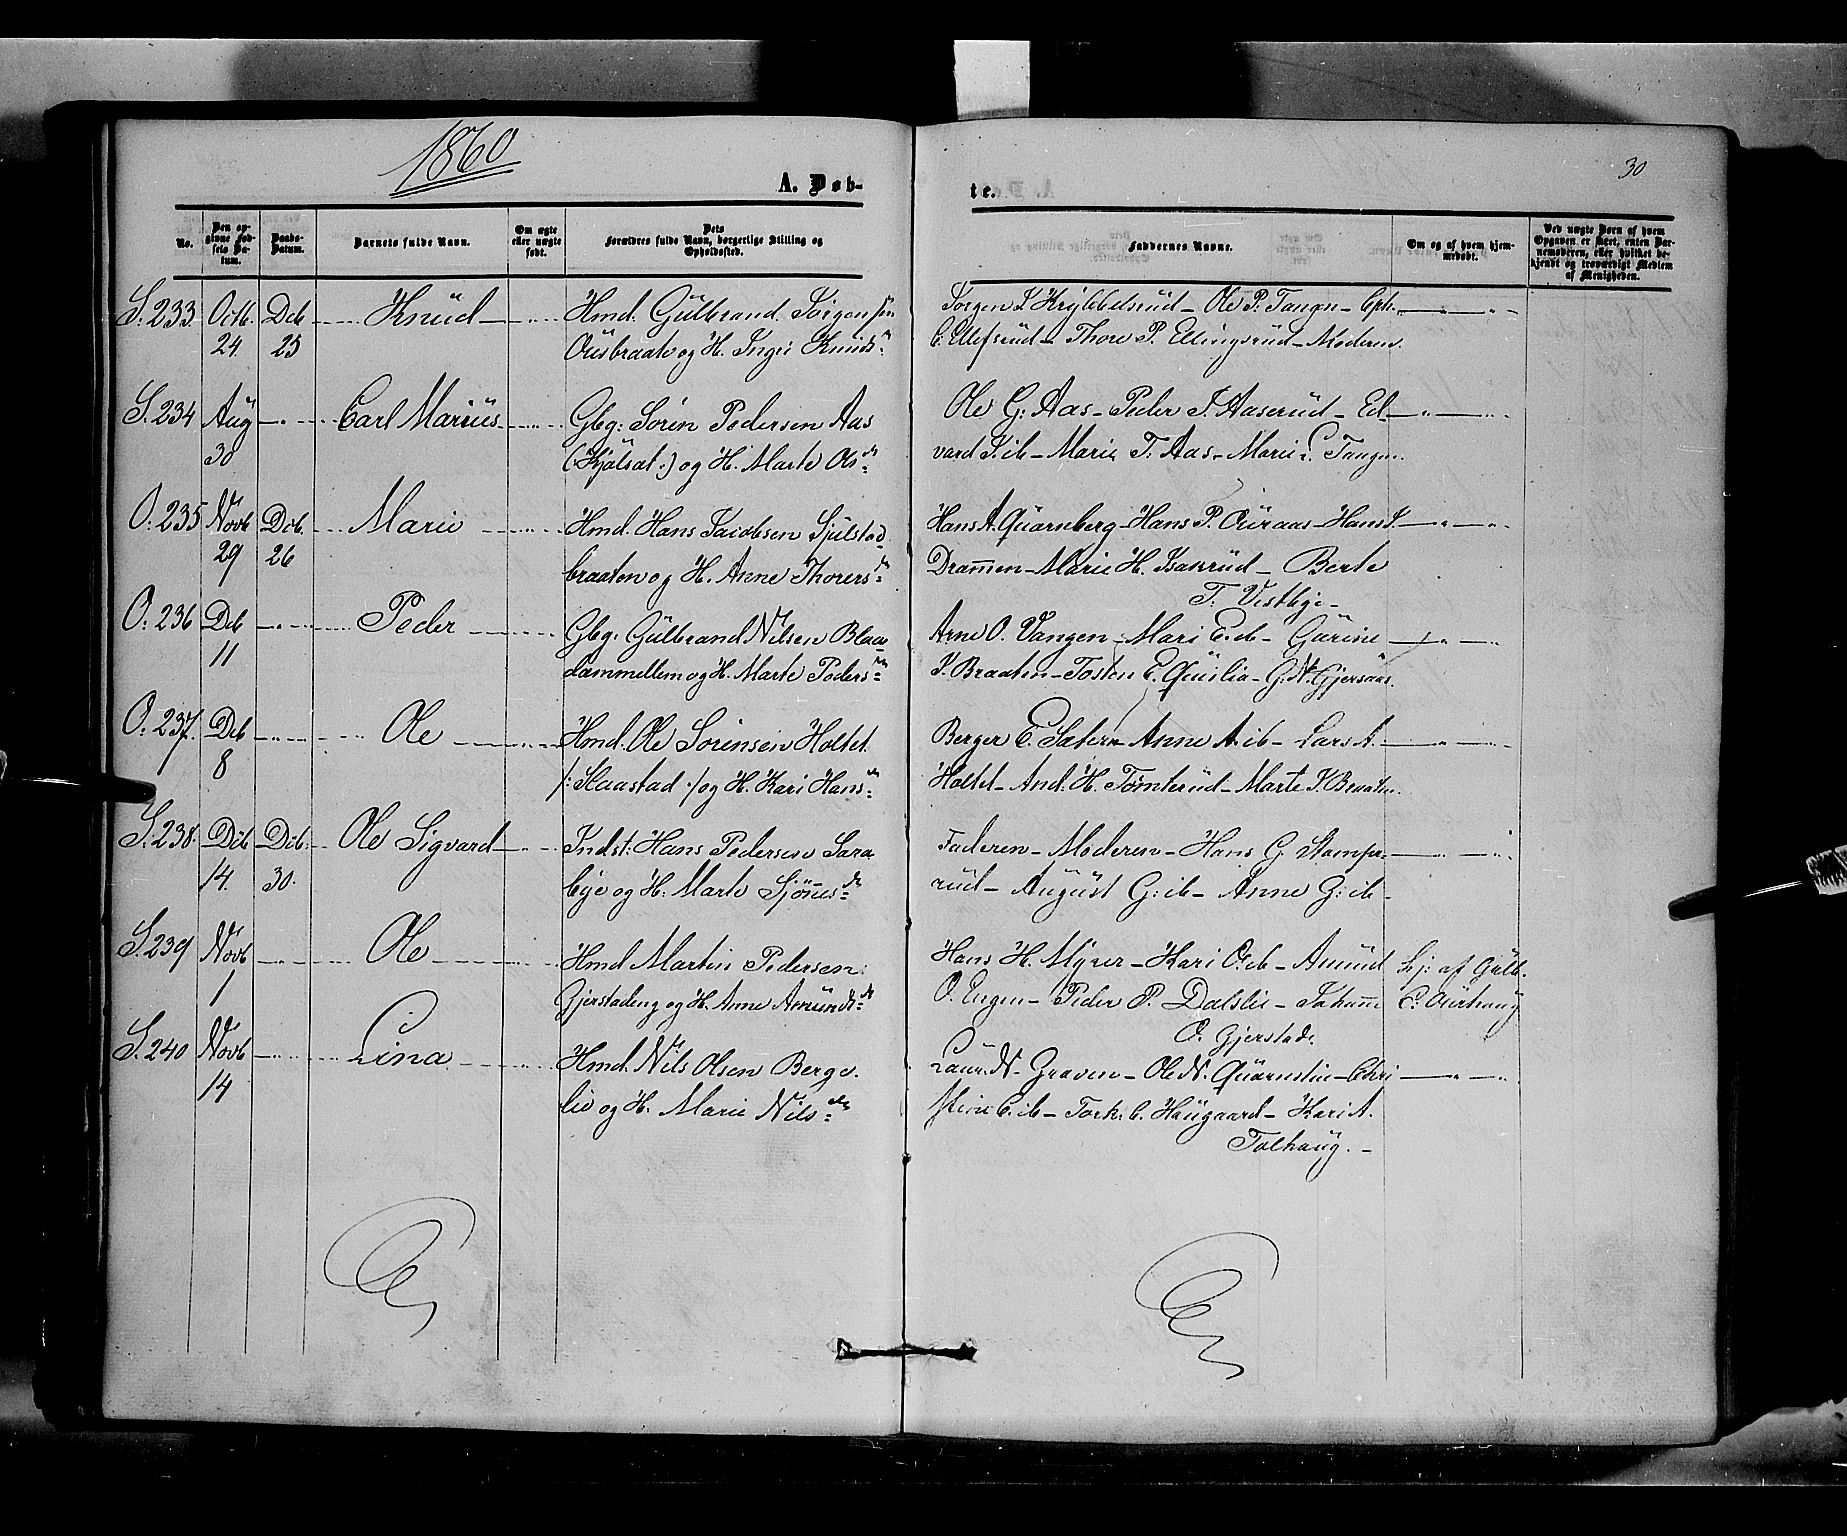 1860
30
A. Døb-
te.
No.
Den op-
givne Fød-
sels Da-
tum.
Daabs-
Datum.
Barnets fulde Navn.
Om ægte
eller uægte
født.
Dets
Forældres fulde Navn, borgerlige Stilling og
Opholdssted.
Faddernes Navne.
Om og af hvem hjem-
medøbt.
Ved uægte Børn af hvem
Opgaven er skeet, enten Bar-
nemoderen, eller hvilket be-
kjendt og troværdigt Medlem
af Menigheden.
S. 233. Octb. Deb Knud Hmd. Gulbrand Jørgensen
24. 25 og H. Inger Knuds
Jørgen J. Krybbelsrud - Ole P. Tangen
C. Ulefsrud - Thore P. Ellingsrud - Moderen.
S. 234 Aug Carl Marius Gbg: Sørin Pedersen Aas
30 (Kjølsæt.) og H. Marte Ols
Ole G. Aas - Peder J. Haserud - Ed-
vard J. ib - Marie T. Aas - Marie L. Tangen
O. 235 Novb Deb. Marie Hmd. Hans Jacobsen Sjulstad
29 26 braaten og H. Anne Thorers
Hans A. Quarnberg - Hans P. Auraas - Hans J.
Dramen - Marie H. Isakrud - Berte
T. Vestbye -
O. 236 Deb Peder Gbg: Gulbrand Nilsen Blaa-
11 dammellem og H. Marte Peders
Arne O. Vangen - Mari E. ib - Gurine
J. Braaten - Tosten E. Quislia - G. N. Gjersaas.
O. 237. Deb Ole Hmd. Ole Sørensen Holtet
8 /: Slaastad :/ og H. Kari Hans
Berger E. Sætern - Anne A. ib - Lars A.
Holtet - And. H. Tømterud - Marte J. Braaten
S. 238. Deb Deb. Ole Sigvard Indst: Hans Pedersen Sara-
14. 30. bye og H. Marte
Faderen - Moderen - Hans G. Stampe-
rud - August G: ib - Anne G: ib -
S. 239 Novb Ole Hmd. Martin Pedersen
1 Gjerstadeng og H. Anne Amunds
Hans H. Myrer - Kari O. ib - Amund
O. Engen - Peder P. Dalslie - Johanne
O. Gjerstad.
Hj: af Gulb.
C. Aurhaug
S. 240 Novb Lina Hmd. Nils Olsen Berge-
14 lie og H. Marie Nils
Laur. N. Graven - Ole N. Quarnstue - Chri-
stine C. ib - Tork. C. Haugaard - Kari A.
Tolhaug. -